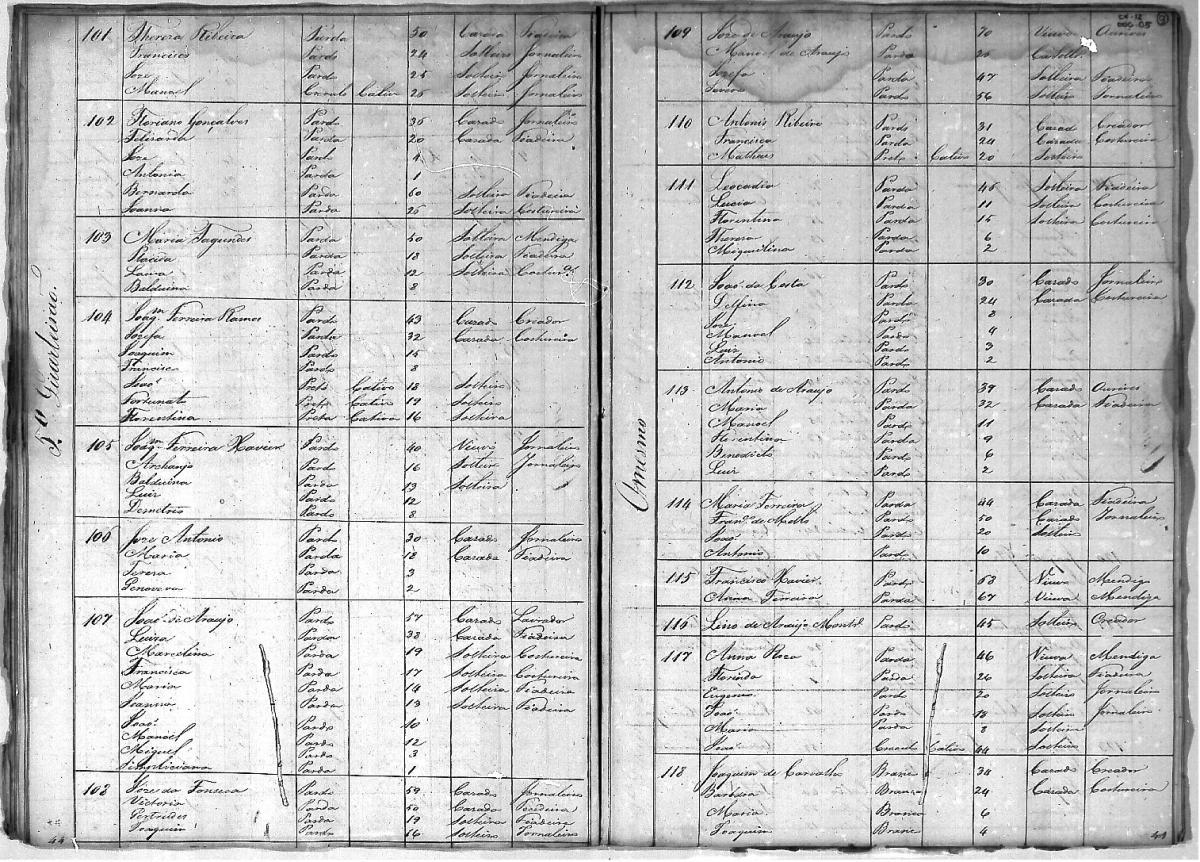 2º Quarteirão.
101 Thereza Ribeira Parda 50 Cazada Fiadeira
Francisco Pardo 24 Solteiro Jornaleiro
Joze Pardo 25 Solteiro Jornaleiro
Manoel Crioulo Cativo 25 Solteiro Jornaleiro
102 Floriano Gonçalves Pardo 36 Cazado Jornaleiro
Felisarda Parda 20 Cazada Fiadeira
Joze Pardo 4
Antonia Parda 1
Bernarda Parda 60 Solteira Fiadeira
Joanna Parda 25 Solteira Costureira
103 Maria Fagundes Parda 50 Solteira Mendiga
Placida Parda 18 Solteira Fiadeira
Laura Parda 12 Solteira Costurª
Balduina Parda 8
104 Joaqm Ferreira Ramos Pardo 43 Cazado Criador
Jozefa Parda 32 Cazada Costureira
Joaquim Pardo 15
Francisco Pardo 8
João Preto Cativo 18 Solteiro
Fortunato Preto Cativo 19 Solteiro
Florentina Preta Cativa 16 Solteira
105 Joaqm Ferreira Xavier Pardo 40 Viuvo Jornaleiro
Archanjo Pardo 16 Solteiro Jornaleiro
Balduina Parda 13 Solteira
Luiz Pardo 12
Demetrio Pardo 8
106 Joze Antonio Pardo 30 Cazado Jornaleiro
Maria Parda 18 Cazada Fiadeira
Tereza Parda 3
Genoveva Parda 2
107 João de Araujo Pardo 57 Cazado Lavrador
Luiza Parda 38 Cazada Fiadeira
Marcelina Parda 19 Solteira Costureira
Francisca Parda 17 Solteira Costureira
Maria Parda 14 Solteira Fiadeira
Joanna Parda 13 Solteira Fiadeira
João Pardo 10
Manoel Pardo 12
Miguel Pardo 3
Simpliciana Parda 1
108 Joze da Fonseca Pardo 59 Cazado Jornaleiro
Victoria Parda 50 Cazada Fiadeira
Gertrudes Parda 19 Solteira Fiadeira
Joaquim Pardo 16 Solteiro Jornaleiro
44
CX-12
DOC-05
O mesmo
109 Joze de Araujo Pardo 70 Viuvo Ourives
Manoel de Araujo Pardo
Jozefa Parda 47 Solteira Fiadeira
Pardo 56 Solteiro Jornaleiro
110 Antonio Ribeiro Pardo 31 Cazado Creador
Francisca Parda 24 Cazada Costureira
Matheus Preto Cativo 20 Solteiro
111 Leocadia Parda 45 Solteira Fiadeira
Lucia Parda 11 Solteira Costureira
Florentina Parda 15 Solteira Costureira
Thereza Parda 6
Miquilina Parda 2
112 João da Costa Pardo 30 Cazado Jornaleiro
Delfina Parda 24 Cazada Costureira
Joze Pardo 8
Manoel Pardo 4
Luiz Pardo 3
Antonio Pardo 2
113 Antonio de Araujo Pardo 39 Cazado Ourives
Maria Parda 32 Cazada Fiadeira
Manoel Pardo 11
Florentina Parda 9
Benedicto Pardo 6
Luiz Pardo 2
114 Maria Ferreira Parda 44 Cazada Fiadeira
Franco de Mello Pardo 50 Cazado Jornaleiro
João Pardo 20 Solteiro
Antonio Pardo 10
115 Francisco Xavier Pardo 53 Viuvo Mendigo
Anna Ferreira Parda 67 Viuva Mendiga
116 Lino de Araujo Pardo 45 Solteiro Creador
117 Anna Roza Parda 46 Viuva Mendiga
Florinda Parda 26 Solteira Fiadeira
Eugenio Pardo 20 Solteiro Jornaleiro
João Pardo 18 Solteiro Jornaleiro
Maria Parda 8 Solteira
João Crioulo Cativo 44 Solteiro
118 Joaquim de Carvalho Branco 34 Cazado Creador
Barbara Branca 24 Cazada Costureira
Maria Branca 6
Joaquim Branco 4
44